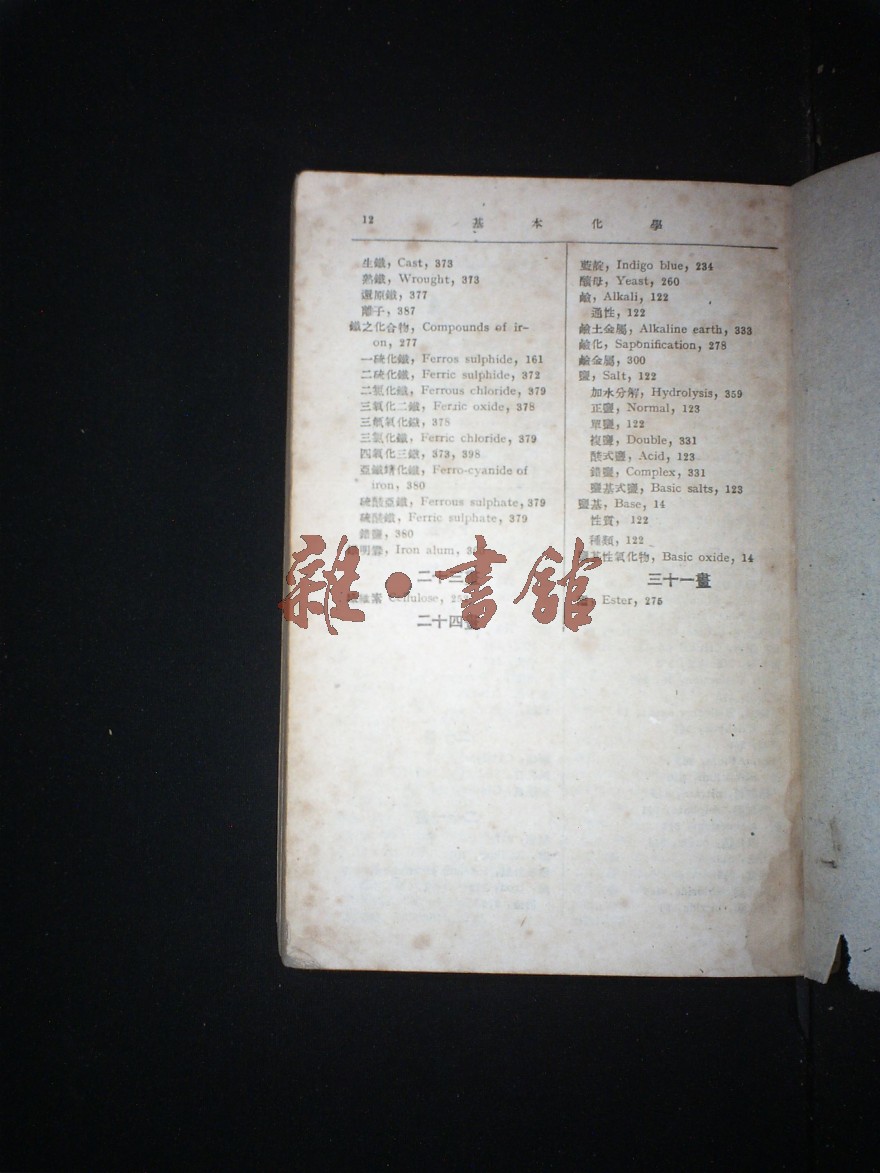 12
基本化學
生鐵, Cast, 373
熟鐵, Wrought, 373
還原鐵, 377
離子, 387
鐵之化合物, Compounds of ir-
on, 277
一硫化鐵, Ferros sulphide, 161
二硫化鐵, Ferric sulphide, 372
二氯化鐵, Ferrous chloride, 379
三氧化二鐵, Ferric oxide, 378
三氫氧化鐵, 378
三氯化鐵, Ferric chloride, 379
四氧化三鐵, 373, 398
亞鐵化鐵, Ferro-cyanide of
iron, 380
硫酸亞鐵, Ferrous sulphate, 379
硫酸鐵, Ferric sulphate, 379
錯鹽, 380
明礬, Iron alum,
二十三畫
維素 Cellulose,
二十四畫
藍靛, Indigo blue, 234
釀母, Yeast, 260
鹼, Alkali, 122
通性, 122
鹼土金屬, Alkaline earth, 333
鹼化, Saponification, 278
鹼金屬, 300
鹽, Salt, 122
加水分解, Hydrolysis, 359
正鹽, Normal, 123
單鹽, 122
複鹽, Double, 331
酸式鹽, Acid, 123
錯鹽, Complex, 331
鹽基式鹽, Basic salts, 123
鹽基, Base, 14
性質, 122
種類, 122
基性氧化物, Basic oxide, 14
三十一畫
Ester, 275
雜·書館